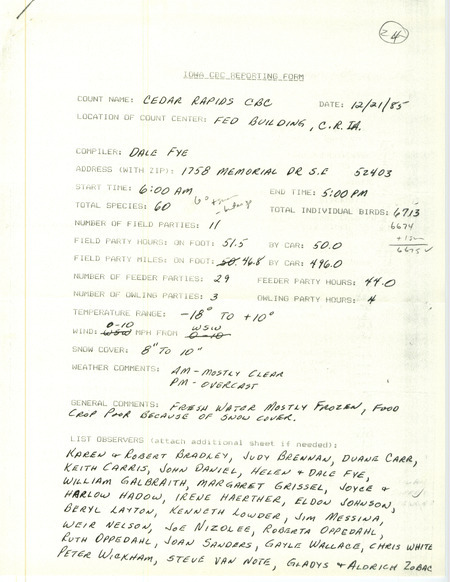 24
IOWA CBC REPORTING FORM
COUNT NAME: CEDAR RAPIDS CBC DATE: 12/21/85
LOCATION OF COUNT CENTER: FED BUILDING, C.R. IA.
COMPILER: DALE FYE
ADDRESS (WITH ZIP): 1758 MEMORIAL DR S.E 52403
START TIME: 6:00 AM END TIME: 5:00 PM
TOTAL SPECIES: 60 TOTAL INDIVIDUAL BIRDS: 6713
6674
NUMBER OF FIELD PARTIES: 11
FIELD PARTY HOURS: ON FOOT: 51.5 BY CAR: 50.0
6675 ✓
FIELD PARTY MILES: ON FOOT: 46.8 BY CAR: 496.0
NUMBER OF FEEDER PARTIES: 29 FEEDER PARTY HOURS: 44.0
NUMBER OF OWLING PARTIES: 3 OWLING PARTY HOURS: 4
TEMPERATURE RANGE: -18° TO +10°
WIND: 0-10 MPH FROM WSW
SNOW COVER: 8" TO 10"
WEATHER COMMENTS: AM-MOSTLY CLEAR
PM-OVERCAST
GENERAL COMMENTS: FRESH WATER MOSTLY FROZEN, FOOD
CROP POOR BECAUSE OF SNOW COVER.
LIST OBSERVERS (attach additional sheet if needed):
KAREN & ROBERT BRADLEY, JUDY BRENNAN, DUANE CARR,
KEITH CARRIS, JOHN DANIEL, HELEN & DALE FYE,
WILLIAM GALBRAITH, MARGARET GRISSEL, JOYCE &
HARLOW HADOW, IRENE HAERTHER, ELDON JOHNSON,
BERYL LAYTON, KENNETH LOWDER, JIM MESSINA,
WEIR NELSON, JOE NIZOLEE, ROBERTA OPPEDAHL,
RUTH OPPEDAHL, JOAN SANDERS, GAYLE WALLACE, CHRIS WHITE
PETER WICKHAM, STEVE VAN NOTE, GLADYS & ALDRICH ZOBAC